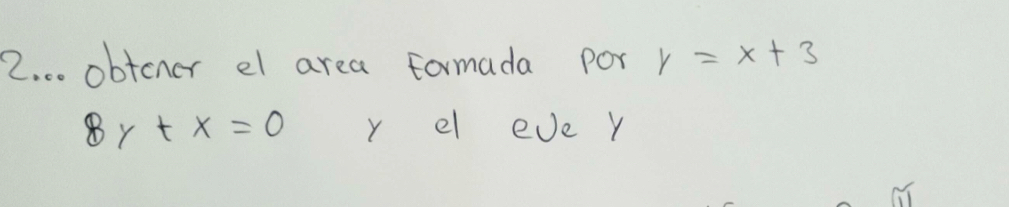 2... obtener el area formada por y = x + 3
8y + x = 0 y el eje y